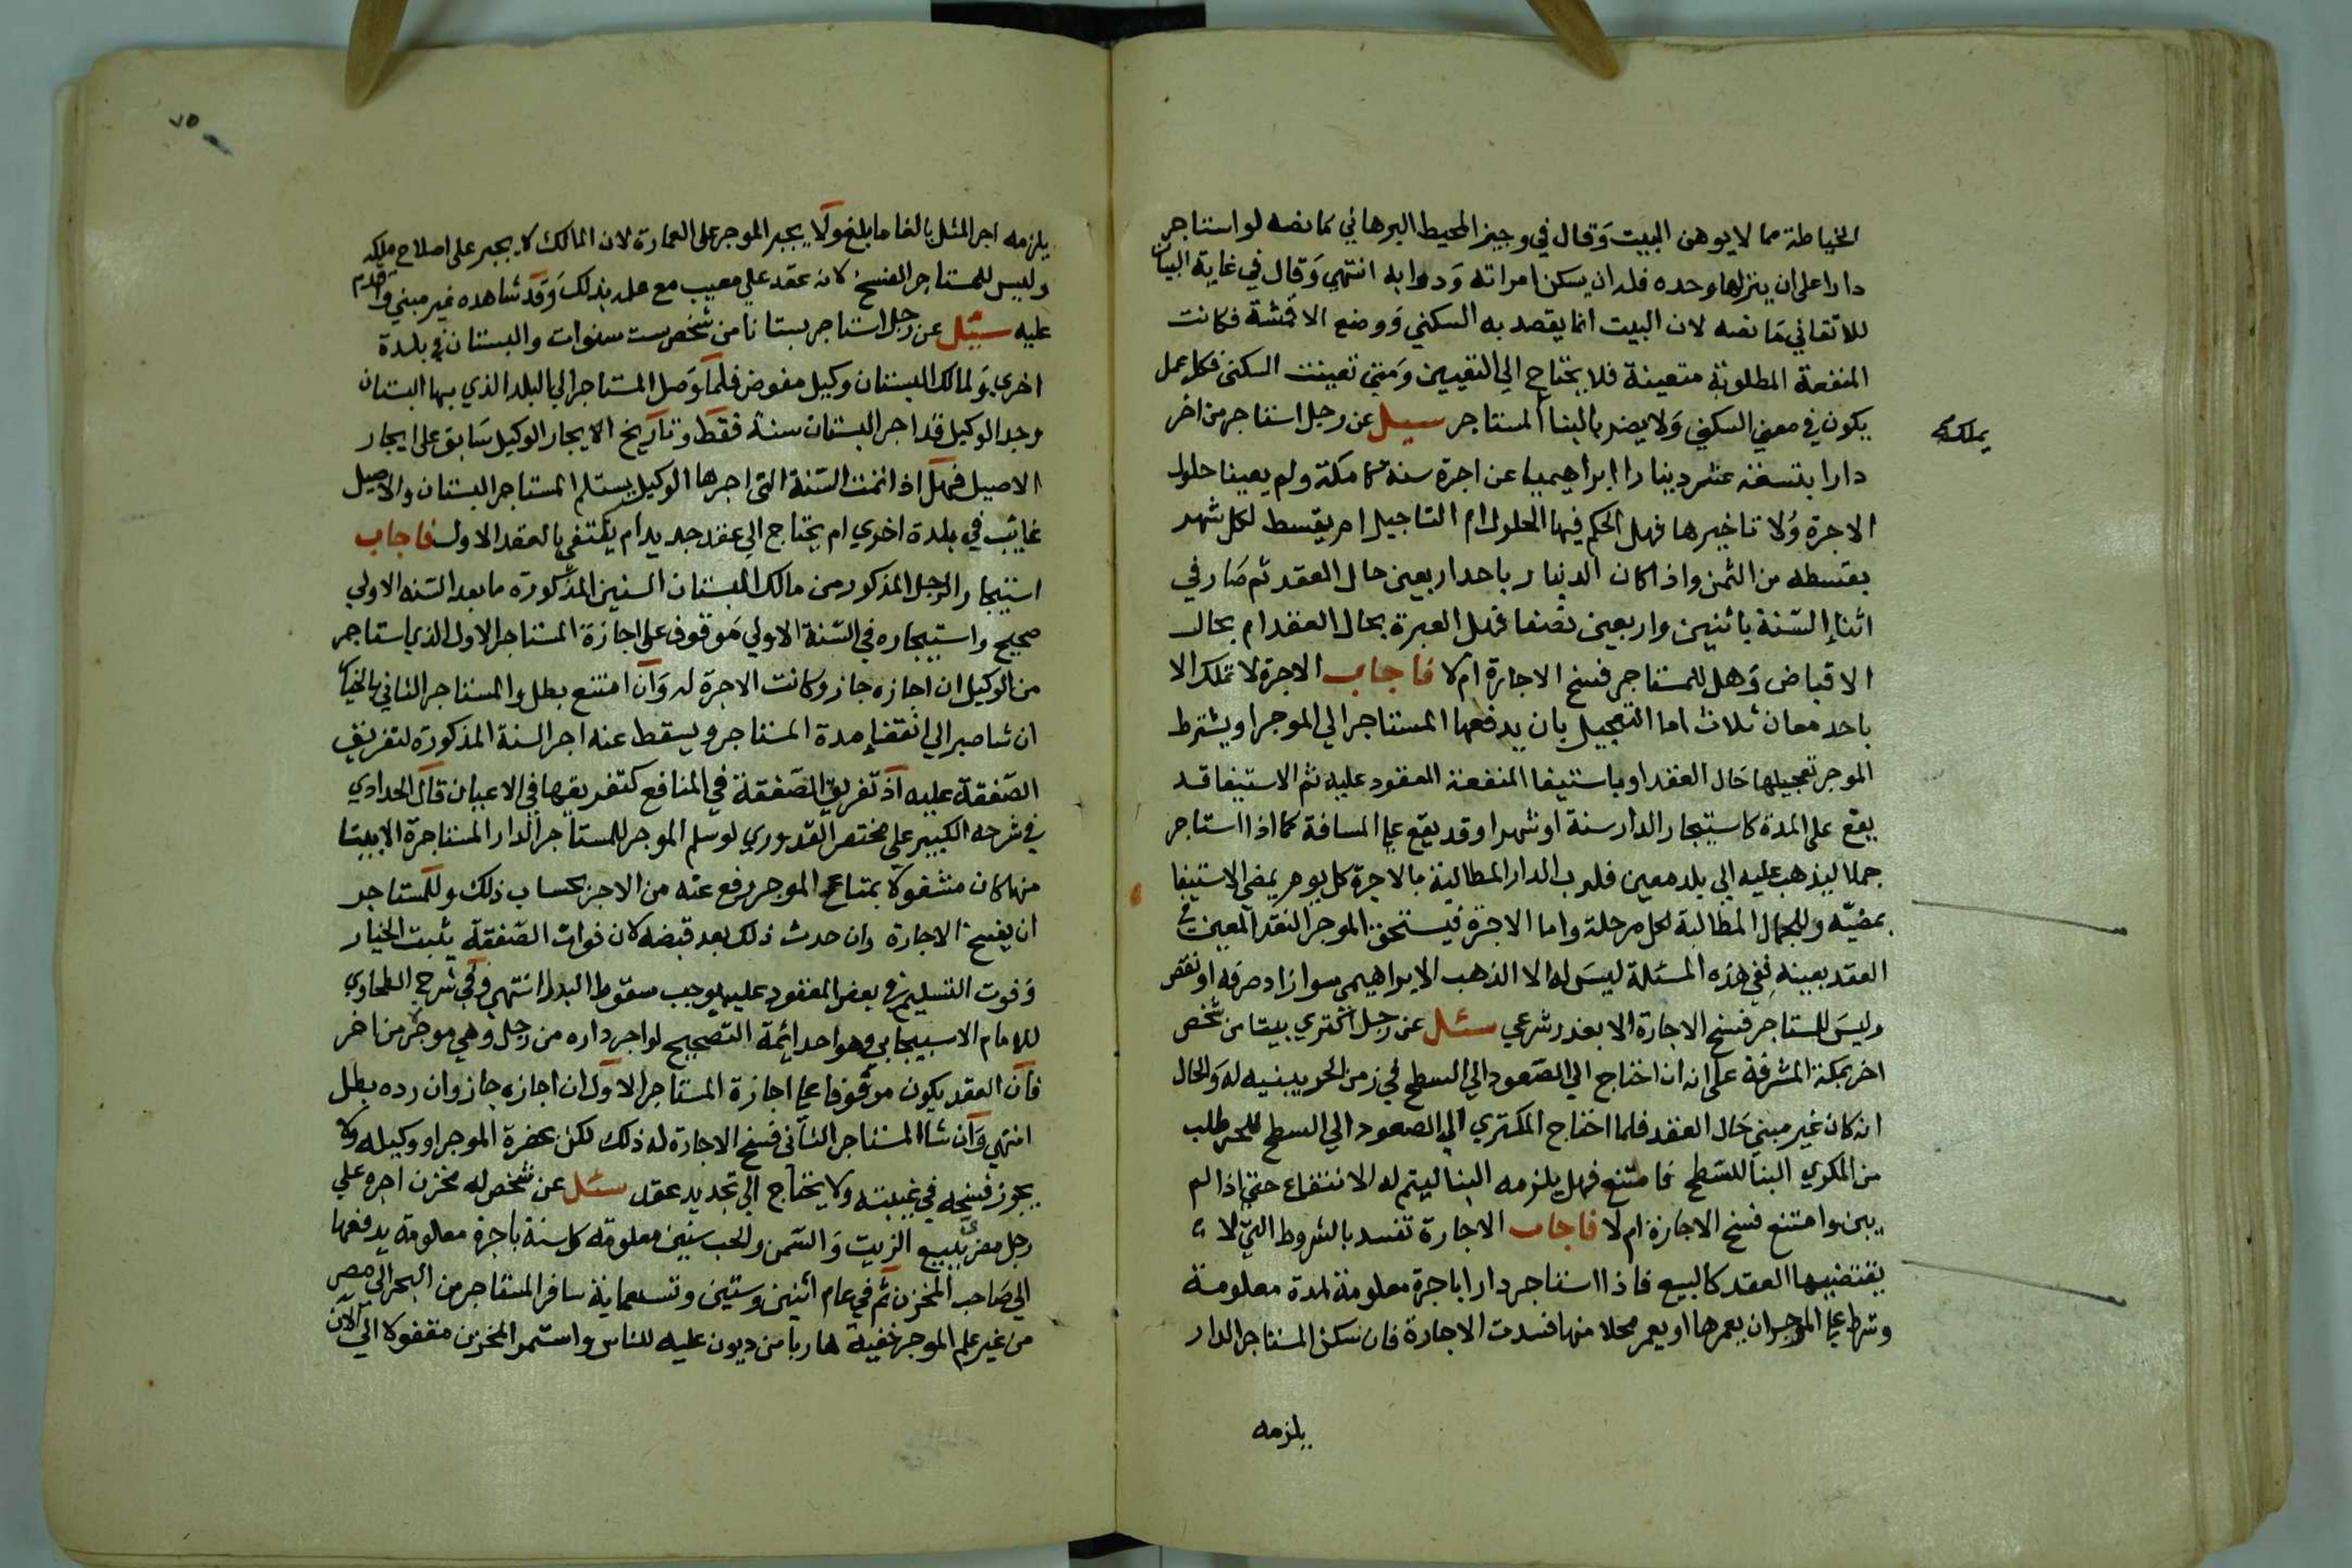 الخياطة مما لا يوهن البيت وقال في وجيز المحيط البرهاني كما نصه لو استاجر
دارا على ان ينزلها وحده فله ان يسكن امراته ودوابه انتهي وقال في غاية البيان
للاتقاني ما نصه لان البيت انما يقصد به السكني ووضع الاقمشة فكانت
المنفعة المطلوبة متعينة فلا يحتاج الي التعيين ومتي تعينت السكنى فكل عمل
يكون في معني السكني ولا يضر بالبنا المستاجر سيل عن رجل استاجر من اخر
يملكه
دارا بتسعة عشر دينارا ابراهيميا عن اجرة سنة كاملة ولم يعينا حلول
الاجرة ولا تاخيرها فهل الحكم فيها الحلول ام التاجيل ام يقسط لكل شهر
بقسطه من الثمن واذا كان الدينار باحد اربعين حال العقد ثم صار في
اثنا السنة باثنين واربعين نصفا فهل العبرة بحال العقد ام بحال
الاقباض وهل للمستاجر فسخ الاجارة ام لا فاجاب الاجرة لا تملك الا
باحد معان ثلاث اما التعجيل بان يدفعها المستاجر الي الموجر او يشترط
الموجر تعجيلها حال العقد او باستيفا المنفعة المعقود عليه ثم الاستيفا قد
يقع على المدة كاستيجار الدار سنة او شهرا وقد يقع علي المسافة كما اذا استاجر
جملا ليذهب عليه الي بلد معين فلرب الدار المطالبة بالاجرة كل يوم يمضي الاستيفا
بمضيه وللجمال المطالبة لكل مرحلة واما الاجرة فيستحق الموجر النقد المعين في
العقد بعينه ففي هذه المسئلة ليس له الا الذهب الابراهيمي سوا زاد صرفه او نقص
وليس للمستاجر فسخ الاجارة الا بعذر شرعي سئل عن رجل اكتري بيتا من شخص
اخر بمكة المشرفة على انه ان احتاج الي الصعود الي السطح في زمن الحر يبنيه له والحال
انه كان غير مبني حال العقد فلما احتاج المكتري الي الصعود الي السطح للحر طلب
من المكري البنا للسطح فامتنع فهل يلزمه البنا ليتم له الانتفاع حتي اذا لم
يبن وامتنع فسخ الاجارة ام لا فاجاب الاجارة تفسد بالشروط التي لا
يقتضيها العقد كالبيع فاذا استاجر دارا باجرة معلومة لمدة معلومة
وشرط علي الموجر ان يعمرها او يعمر محلا منها فسدت الاجارة فان سكن المستاجر الدار
يلزمه
٧٥
يلزمه اجر المثل بالغا ما بلغ ولا يجبر الموجر على العمارة لان المالك لا يجبر على اصلاح ملكه
وليس للمستاجر الفسخ لانه عقد علي معيب مع علمه بذلك وقد شاهده غير مبني واقدم
عليه سئيل عن رجل استاجر بستانا من شخص ست سنوات والبستان في بلدة
اخري ولمالك البستان وكيل مفوض فلما وصل المستاجر الي البلد الذي بها البستان
وجد الوكيل قد اجر البستان سنة فقط وتاريخ الايجار الوكيل سابق على ايجار
الاصيل فهل اذا تمت السنة التي اجرها الوكيل يستلم المستاجر البستان والاصيل
غايب في بلدة اخري ام يحتاج الي عقد جديد ام يكتفي بالعقد الاول فاجاب
استيجار الرجل المذكور من مالك البستان السنين المذكورة ما بعد السنه الاولي
صحيح واستيجاره في السنة الاولي موقوف على اجازة المستاجر الاول الذي استاجر
من الوكيل ان اجازه جاز وكانت الاجرة له وان امتنع بطل والمستاجر الثاني بالخيار
ان شا صبر الي انقضا مدة المستاجر ويسقط عنه اجر السنة المذكورة لتفريق
الصفقة عليه اذ تفريق الصفقة في المنافع كتفريقها في الاعيان قال الحدادي
في شرحه الكبير علي مختصر القدوري لو سلم الموجر للمستاجر الدار المستاجرة الا بيتا
منها كان مشغولا بمتاع الموجر رفع عنه من الاجر بحساب ذلك وللمستاجر
ان يفسخ الاجارة وان حدث ذلك بعد قبضه لان فوات الصفقة يثبت الخيار
وفوت التسليم في بعض المعقود عليه يوجب سقوط البدل انتهي وفي شرح الطحاوي
للامام الاسبيجابي وهو احد ايمة التصحيح لو اجر داره من رجل وهي موجرة من اخر
فان العقد يكون موقوفا علي اجازة المستاجر الاول ان اجازه جاز وان رده بطل
انتهي وان شا المستاجر الثاني فسخ الاجارة له ذلك لكن بحضرة الموجر او وكيله ولا
يجوز فسخه في غيبته ولا يحتاج الي تجديد عقد سئل عن شخص له مخزن اجره علي
رجل مغربي لبيع الزيت والسمن والحب سنين معلومة كل سنة باجرة معلومة يدفعها
الي صاحب المخزن ثم في عام اثنين وستين وتسعماية سافر المستاجر من البحر الي مصر
من غير علم الموجر خفية هاربا من ديون عليه للناس واستمر المخزن مقفولا الي الان